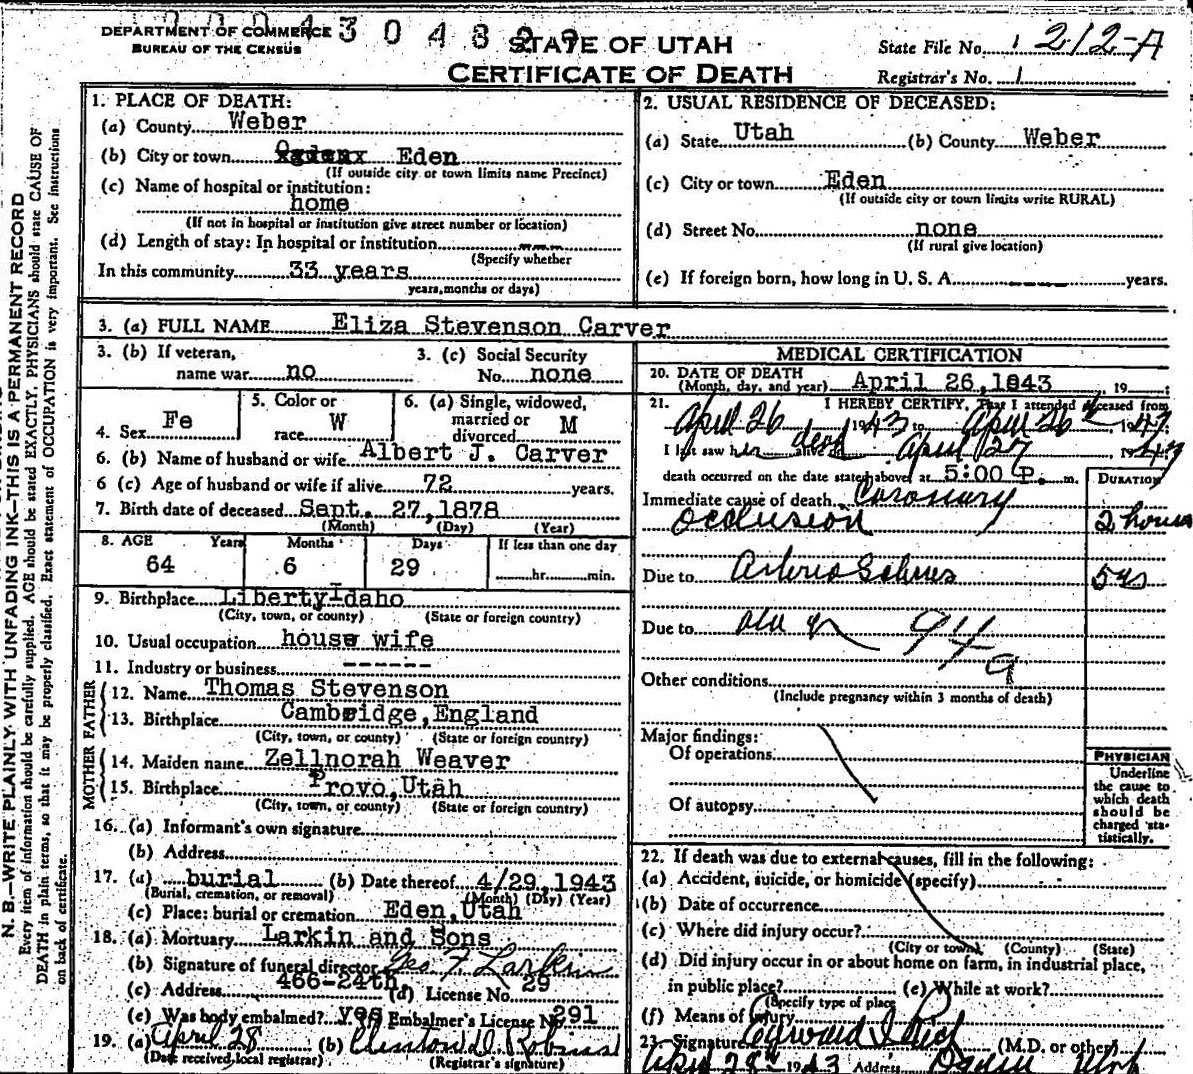 DEPARTMENT OF COMMERCE
BUREAU OF THE CENSUS
STATE OF UTAH
CERTIFICATE OF DEATH
State File No. 212-A
Registrar's No. 1
N. B.—WRITE PLAINLY WITH UNFADING INK—THIS IS A PERMANENT RECORD
Every item of information should be carefully supplied. AGE should be stated EXACTLY. PHYSICIANS should state CAUSE OF
DEATH in plain terms, so that it may be properly classified. Exact statement of OCCUPATION is very important. See instructions
on back of certificate.
1. PLACE OF DEATH:
(a) County Weber
(b) City or town Eden
(If outside city or town limits name Precinct)
(c) Name of hospital or institution:
home
(If not in hospital or institution give street number or location)
(d) Length of stay: In hospital or institution ---
(Specify whether
In this community 33 years
years, months or days)
2. USUAL RESIDENCE OF DECEASED:
(a) State Utah (b) County Weber
(c) City or town Eden
(If outside city or town limits write RURAL)
(d) Street No. none
(If rural give location)
(e) If foreign born, how long in U. S. A. ---- years.
3. (a) FULL NAME Eliza Stevenson Carver
3. (b) If veteran, name war no
3. (c) Social Security No. none
4. Sex Fe
5. Color or race W
6. (a) Single, widowed, married or divorced M
6. (b) Name of husband or wife Albert J. Carver
6 (c) Age of husband or wife if alive 72 years.
7. Birth date of deceased Sept. 27,1878
(Month) (Day) (Year)
8. AGE Years Months Days If less than one day
64 6 29 hr. min.
9. Birthplace Liberty Idaho
(City, town, or county) (State or foreign country)
10. Usual occupation house wife
11. Industry or business ------
FATHER
12. Name Thomas Stevenson
13. Birthplace Cambridge, England
(City, town, or county) (State or foreign country)
MOTHER
14. Maiden name Zellnorah Weaver
15. Birthplace Provo, Utah
(City, town, or county) (State or foreign country)
16. (a) Informant's own signature
(b) Address
17. (a) burial (b) Date thereof 4/29,1943
(Burial, cremation, or removal) (Month) (Day) (Year)
(c) Place: burial or cremation Eden, Utah
18. (a) Mortuary Larkin and Sons
(b) Signature of funeral director Geo. F. Larkin
(c) Address 466-24th. (d) License No. 29
(e) Was body embalmed? yes Embalmer's License N 291
19. (a) April 28 (b) Clinton D. Robins
(Date received local registrar) (Registrar's signature)
MEDICAL CERTIFICATION
20. DATE OF DEATH
(Month, day, and year) April 26,1943, 19
21. I HEREBY CERTIFY, That I attended deceased from
April 26 1943 to April 26th, 1943;
I last saw her dead alive on April 27 1943
death occurred on the date stated above, at 5:00 P. m.
DURATION
Immediate cause of death Coronary
occlusion 2 hours
Due to 5 yrs
Due to
94
a
Other conditions
(Include pregnancy within 3 months of death)
Major findings:
Of operations
Of autopsy
PHYSICIAN
Underline
the cause to
which death
should be
charged sta-
tistically.
22. If death was due to external causes, fill in the following:
(a) Accident, suicide, or homicide (specify)
(b) Date of occurrence
(c) Where did injury occur?
(City or town) (County) (State)
(d) Did injury occur in or about home on farm, in industrial place,
in public place? (e) While at work?
(Specify type of place
(f) Means of injury
23. Signature Edward I. Rich (M.D. or other)
April 28th 1943 Address Ogden Utah